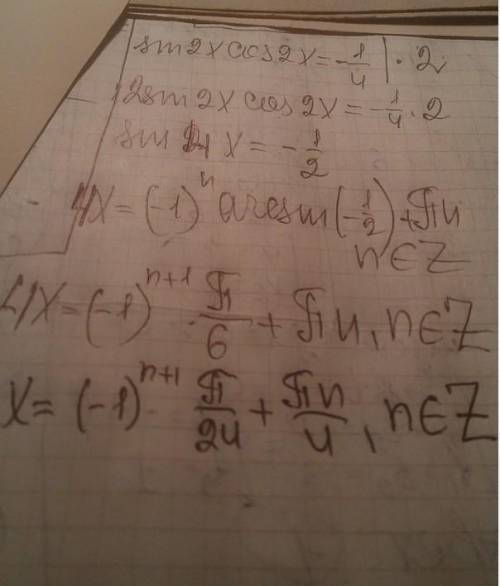 sin2x cos2x = -1/4 | · 2
2sin2x cos2x = -1/4 · 2
sin 4x = -1/2
4x = (-1)^n arcsin(-1/2) + πn
n∈Z
4x = (-1)^{n+1} · π/6 + πn, n∈Z
x = (-1)^{n+1} π/24 + πn/4, n∈Z